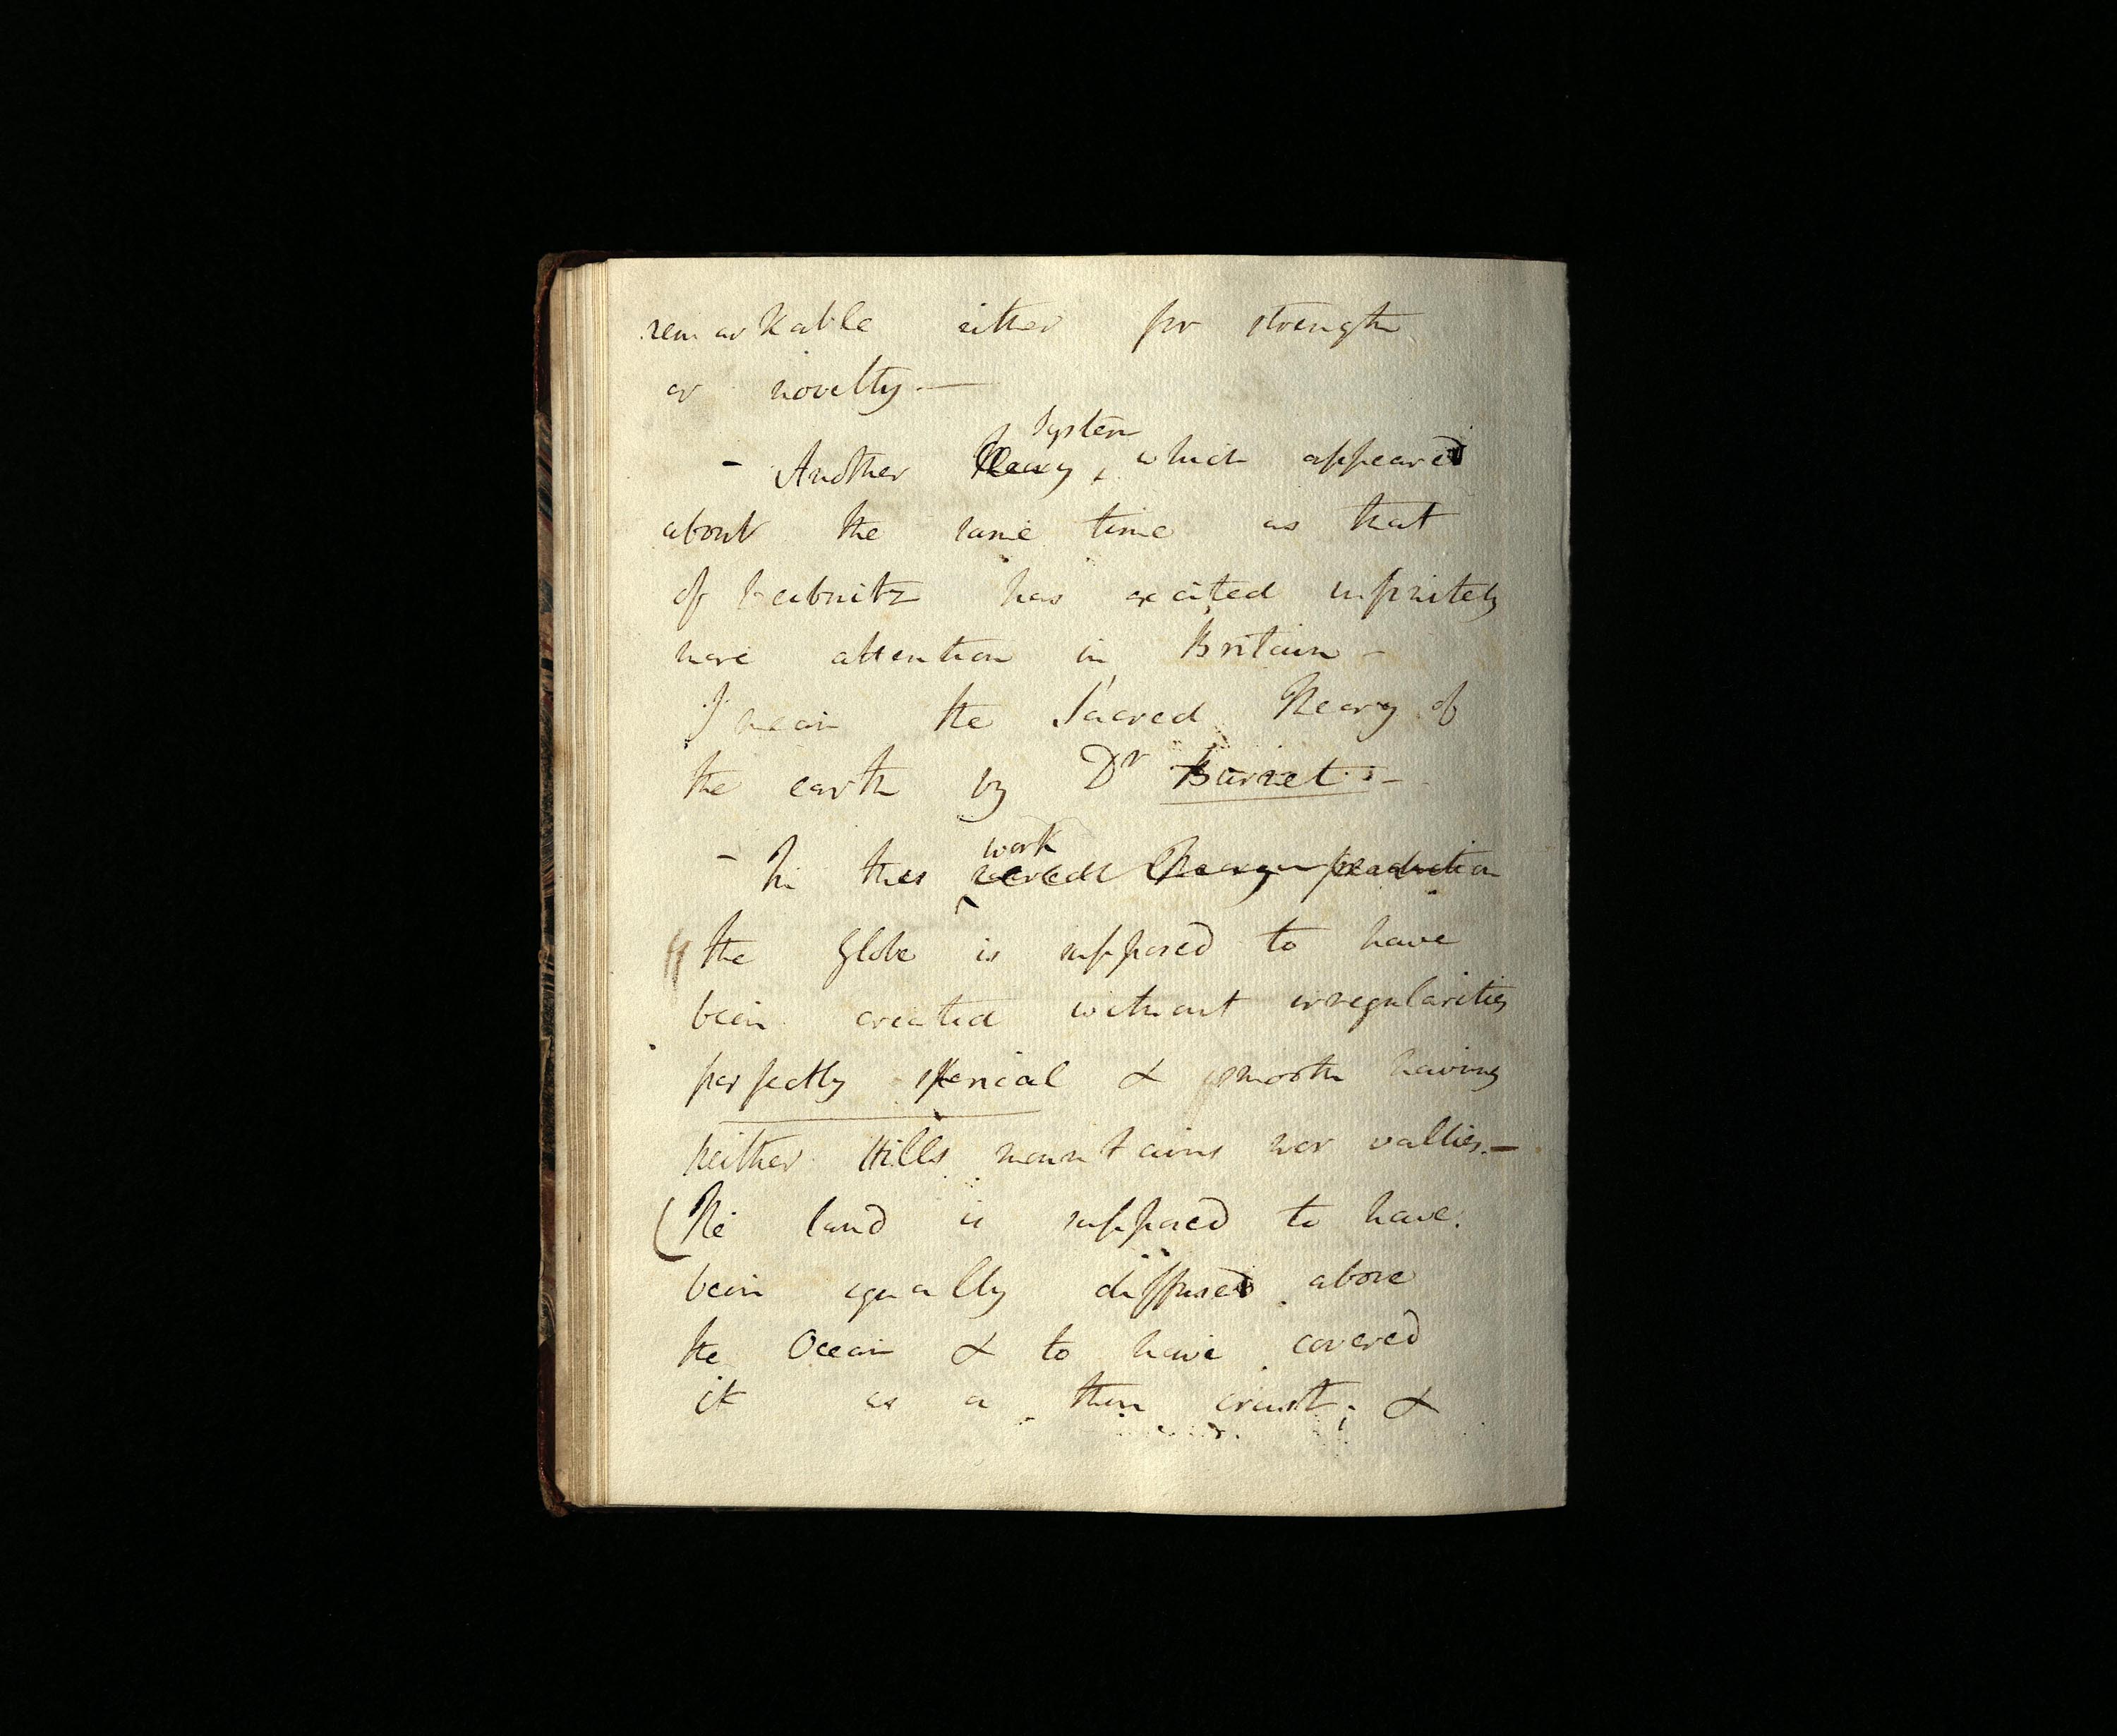 remarkable either for strength
or novelty —
- Another Theory system, which appeared
about the same time as that
of Leibnitz has excited infinitely
more attention in Britain -
I mean the Sacred Theory of
the earth by Dr Burnet -
- In this work sacred Theory production
the Globe is supposed to have
been created without irregularities
perfectly spherical & smooth having
neither Hills mountains nor vallies. -
(The land is supposed to have
been equally diffused above
the Ocean & to have covered
it as a thin crust; &